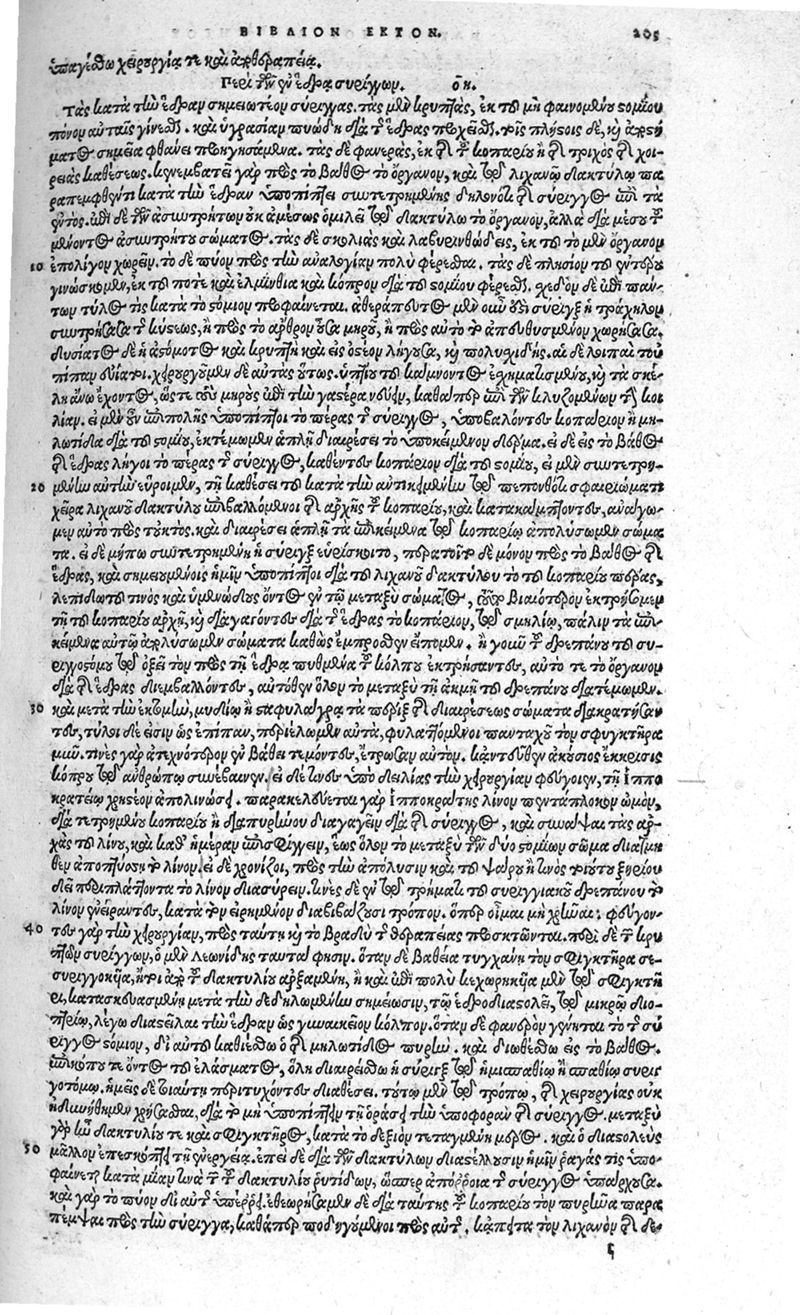 ΒΙΒΛΙΟΝ ΕΚΤΟΝ. 205
ὑπαγέσθω χειρουργίᾳ τε καὶ θεραπείᾳ.
Περὶ τῶν ἐν ἕδρᾳ συρίγγων. οη.
Τὰς κατὰ τὴν ἕδραν σημειωτέον σύριγγας. τὰς μὲν κρυπτὰς, ἐκ τοῦ μὴ φαινομένου στομίου
πόνον αὐταῖς γίνεσθαι. καὶ ὑγρασίαν πυώδη διὰ τῆς ἕδρας προχεῖσθαι. τοῖς πλείστοις δὲ, καὶ ἀποστή
ματος σημεῖα φθάνει προηγησάμενα. τὰς δὲ φανερὰς, ἐκ τῆς τοῦ κοπαρίου ἢ τῆς τριχὸς τῆς χοι
ρείας καθέσεως. κενεμβατεῖ γὰρ πρὸς τὸ βάθος τὸ ὄργανον, καὶ τῷ λιχανῷ δακτύλῳ πα
ραπεμφθέντι κατὰ τὴν ἕδραν ὑποπίπτει συντετρημένης δηλονότι τῆς σύριγγος ἐπὶ τὰ
ἐντός. ἐπὶ δὲ τῶν ἀσυντρήτων οὐκ ἀμέσως ὁμιλεῖ τῷ δακτύλῳ τὸ ὄργανον, ἀλλὰ διὰ μέσου τοῦ
μένοντος ἀσυντρήτου σώματος. τὰς δὲ σκολιὰς καὶ λαβυρινθώδεις, ἐκ τοῦ τὸ μὲν ὄργανον
10 ἐπ' ὀλίγον χωρεῖν. τὸ δὲ πύον πρὸς τὴν ἀναλογίαν πολὺ φέρεσθαι. τὰς δὲ πλησίον τοῦ ἐντέρου
γινώσκομεν, ἐκ τοῦ ποτὲ καὶ ἑλμίνθια καὶ κόπρον διὰ τοῦ στομίου φέρεσθαι. σχεδὸν δὲ ἐπὶ πάν
των τύλος τις κατὰ τὸ στόμιον προφαίνεται. ἀθεράπευτος μὲν οὖν ἐστι σύριγξ ἡ τράχηλον
συντρήσασα τῆς κύστεως, ἢ πρὸς τὸ ἄρθρον οὖσα μηροῦ, ἢ πρὸς αὐτὸ τὸ ἀπευθυσμένον χωρήσασα.
δυσίατος δὲ ἡ ἄστομος καὶ κρυπτὴ καὶ εἰς ὀστέον λήγουσα, καὶ πολυσχιδής. αἱ δὲ λοιπαὶ τοὐ
πίπαν εὐίατοι. χειρουργοῦμεν δὲ αὐτὰς οὕτως. ὑπτίου τοῦ κάμνοντος ἐσχηματισμένου, καὶ τὰ σκέ
λη ἄνω ἔχοντος, ὥστε τοὺς μηροὺς ἐπὶ τὴν γαστέρα νεύειν, καθάπερ ἐπὶ τῶν κλυζομένων τὴν κοι
λίαν. εἰ μὲν οὖν ἐπιπολῆς ὑποπίπτοι τὸ πέρας τῆς σύριγγος, ὑποβαλόντες κοπάριον ἢ μη
λωτίδα διὰ τοῦ στομίου, ἐκτέμωμεν ἁπλῇ διαιρέσει τὸ ὑποκείμενον δέρμα. εἰ δὲ εἰς τὸ βάθος
τῆς ἕδρας λήγοι τὸ πέρας τῆς σύριγγος, καθέντες κοπάριον διὰ τοῦ στομίου, εἰ μὲν συντετρη
20 μένην αὐτὴν εὕροιμεν, τῇ καθέσει τοῦ κατὰ τὴν ἀντικειμένην τῷ πεπονθότι σφαιρώματι
χεῖρα λιχανοῦ δακτύλου ἐπιβαλλόμενοι τῆς ἀρχῆς τοῦ κοπαρίου, καὶ κατακάμπτοντες, ἀνάγω
μεν αὐτὸ πρὸς τοὐκτός. καὶ διαιρέσει ἁπλῇ τὰ ἐπικείμενα τῷ κοπαρίῳ ἀπολύσωμεν σώμα
τα. εἰ δὲ μήπω συντετρημένη ἡ σύριγξ εὑρίσκοιτο, περατοῖτο δὲ μόνον πρὸς τὸ βάθος τῆς
ἕδρας, καὶ σημειουμένοις ἡμῖν ὑποπίπτοι διὰ τοῦ λιχανοῦ δακτύλου τὸ τοῦ κοπαρίου πέρας,
λεπιδωτοῦ τινὸς καὶ ὑμενώδους ὄντος ἐν τῷ μεταξὺ σώματος, τοῦτο βιαιότερον ἐκτρήσωμεν
τῇ τοῦ κοπαρίου ἀρχῇ, καὶ διαγαγόντες διὰ τῆς ἕδρας τὸ κοπάριον, τῷ σμιλίῳ, πάλιν τὰ ἐπι
κείμενα αὐτῷ ἀπολύσωμεν σώματα καθὼς ἔμπροσθεν εἴπομεν. ἢ γοῦν τοῦ δρεπάνου τοῦ συ
ριγγοτόμου τῷ ὀξεῖ τὸν πρὸς τῇ ἕδρᾳ πυθμένα τοῦ κόλπου ἐκτρήσαντες, αὐτό τε τὸ ὄργανον
διὰ τῆς ἕδρας διεμβαλλόντες, αὐτόθεν ὅλον τὸ μεταξὺ τῇ ἀκμῇ τοῦ δρεπάνου διατέμωμεν.
30 καὶ μετὰ τὴν ἐκτομὴν, μυδίῳ ἢ σταφυλάγρᾳ τὰ πέριξ τῆς διαιρέσεως σώματα διακρατήσαν
τες, τύλοι δέ εἰσιν ὡς ἐπίπαν, περιέλωμεν αὐτὰ, φυλαττόμενοι πανταχοῦ τὸν σφιγκτῆρα
μῦν. τινὲς γὰρ ἀτεχνότερον ἐν βάθει τεμόντες, ἔτρωσαν αὐτόν. κἀντεῦθεν ἀκούσιος ἔκκρισις
κόπρου τῷ ἀνθρώπῳ συνέβαινεν. εἰ δέ τινες ὑπὸ δειλίας τὴν χειρουργίαν φεύγοιεν, τῇ ἱππο
κρατείῳ χρηστέον ἀπολινώσει. παρακελεύεται γὰρ ἱπποκράτης λίνον πεντάπλοκον ὠμὸν,
διὰ τετρημένου κοπαρίου ἢ διαπυρήνου διαγαγεῖν διὰ τῆς σύριγγος, καὶ συνάψαι τὰς ἀρ
χὰς τοῦ λίνου, καὶ καθ' ἡμέραν ἐπισφίγγειν, ἕως ὅλον τὸ μεταξὺ τῶν δύο στομίων σῶμα διαιρε
θὲν ἀποπτύσῃ τὸ λίνον. εἰ δὲ χρονίζοι, πρὸς τὴν ἀπόλυσιν καὶ τοῦ ψαροῦ ἤ τινος τοιούτου ξηρίου
δεῖ περιπλάττοντα τὸ λίνον διασύρειν. τινὲς δὲ ἐν τῷ τρήματι τοῦ συριγγιακοῦ δρεπάνου τὸ
λίνον ἐνείραντες, κατὰ τὸν εἰρημένον διαβιβάζουσι τρόπον. ὅπερ οἶμαι μὴ χρῆναι. φεύγον
40 τες γὰρ τὴν χειρουργίαν, πρὸς ταύτῃ καὶ τὸ βραδὺ τῆς θεραπείας προσκτῶνται. περὶ δὲ τῶν κρυ
πτῶν συρίγγων, ὁ μὲν Λεωνίδης ταῦτα φησίν. ὅταν δὲ βαθεῖα τυγχάνῃ τὸν σφιγκτῆρα σε
συριγγοκυῖα, ἤτοι ἀπὸ τοῦ δακτυλίου ἀρξαμένη, ἢ καὶ ἐπὶ πολὺ κεχωρηκυῖα μὲν τῷ σφιγκτῆ
ρι, κατασκευασμένη μετὰ τὴν δεδηλωμένην σημείωσιν, τῷ ἑδροδιαστολεῖ, τῷ μικρῷ διο
πτρίῳ, λέγω διαστεῖλαι τὴν ἕδραν ὡς γυναικεῖον κόλπον. ὅταν δὲ φανερὸν γένηται τὸ τῆς σύ
ριγγος στόμιον, δι' αὐτοῦ καθιέσθω ὁ τῆς μηλωτίδος πυρήν. καὶ διωθέσθω εἰς τὸ βάθος.
ἐπικόπου τε ὄντος τοῦ ἐλάσματος, ὅλη διαιρείσθω ἡ σύριγξ τῷ ἡμισπαθίῳ ἢ σπαθίῳ συριγ
γοτόμῳ. ἡμεῖς δὲ τοιαύτῃ περιτυχόντες διαθέσει. τούτῳ μὲν τῷ τρόπῳ, τῆς χειρουργίας οὐκ
ἠδυνήθημεν χρήσασθαι, διὰ τὸ μὴ ὑποπίπτειν τῇ ὁράσει τὴν ὑποφορὰν τῆς σύριγγος. μεταξὺ
γὰρ ἦν δακτυλίου τε καὶ σφιγκτῆρος, κατὰ τὸ δεξιὸν τεταγμένη μέρος. καὶ ὁ διαστολεὺς
50 μᾶλλον ἐπεσκότει τῇ ἐνεργείᾳ. ἐπεὶ δὲ διὰ τῶν δακτύλων διαστέλλουσιν ἡμῖν ῥαγάς τις ὑπο
φαίνεται κατὰ μίαν τινὰ τῶν τοῦ δακτυλίου ῥυτίδων, ὥσπερ ἀπόρροια τῆς σύριγγος ὑπάρχουσα.
καὶ γὰρ τὸ πύον δι' αὐτῆς ὑπέρρει. ἐθεωρήσαμεν δὲ διὰ ταύτης τοῦ κοπαρίου τὸν πυρῆνα παρα
πέμψαι πρὸς τὴν σύριγγα, καθάπερ ποδηγούμενοι πρὸς αὐτῆς. κἄπειτα τὸν λιχανὸν τῆς δε-
ς